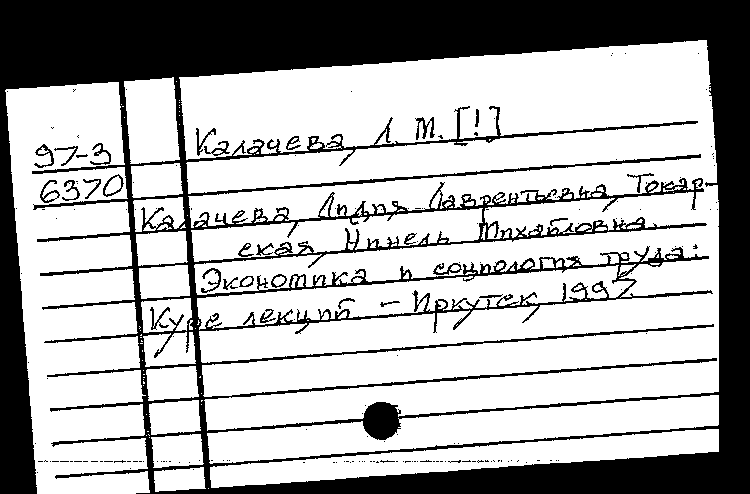 97-3 Калачева, Л. М. [!]
6370
Калачева, Лидия Лаврентьевна, Токар-
ская, Нинель Михайловна.
Экономика и социология труда:
Курс лекций - Иркутск, 1997